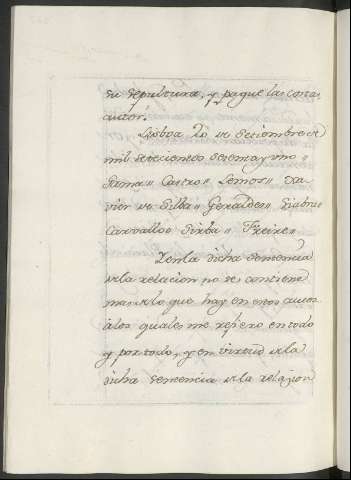 su sepultura, y pague las cortas,
autor.
Lisboa 20 de Setiembre de
mil setecientos sesenta y uno =
Gama = Castro = Lemos = Xa
vier de Silba = Geraldes = Siabra =
Carvallo = Seixba = Freire =
Y en la dicha sentencia
de la relacion no se contiene
mas de lo que hay en estos autos
à los quales me refiero en todo
y por todo, y en virtud de la
dicha sentencia de la relazion